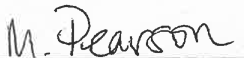 M. Pearson